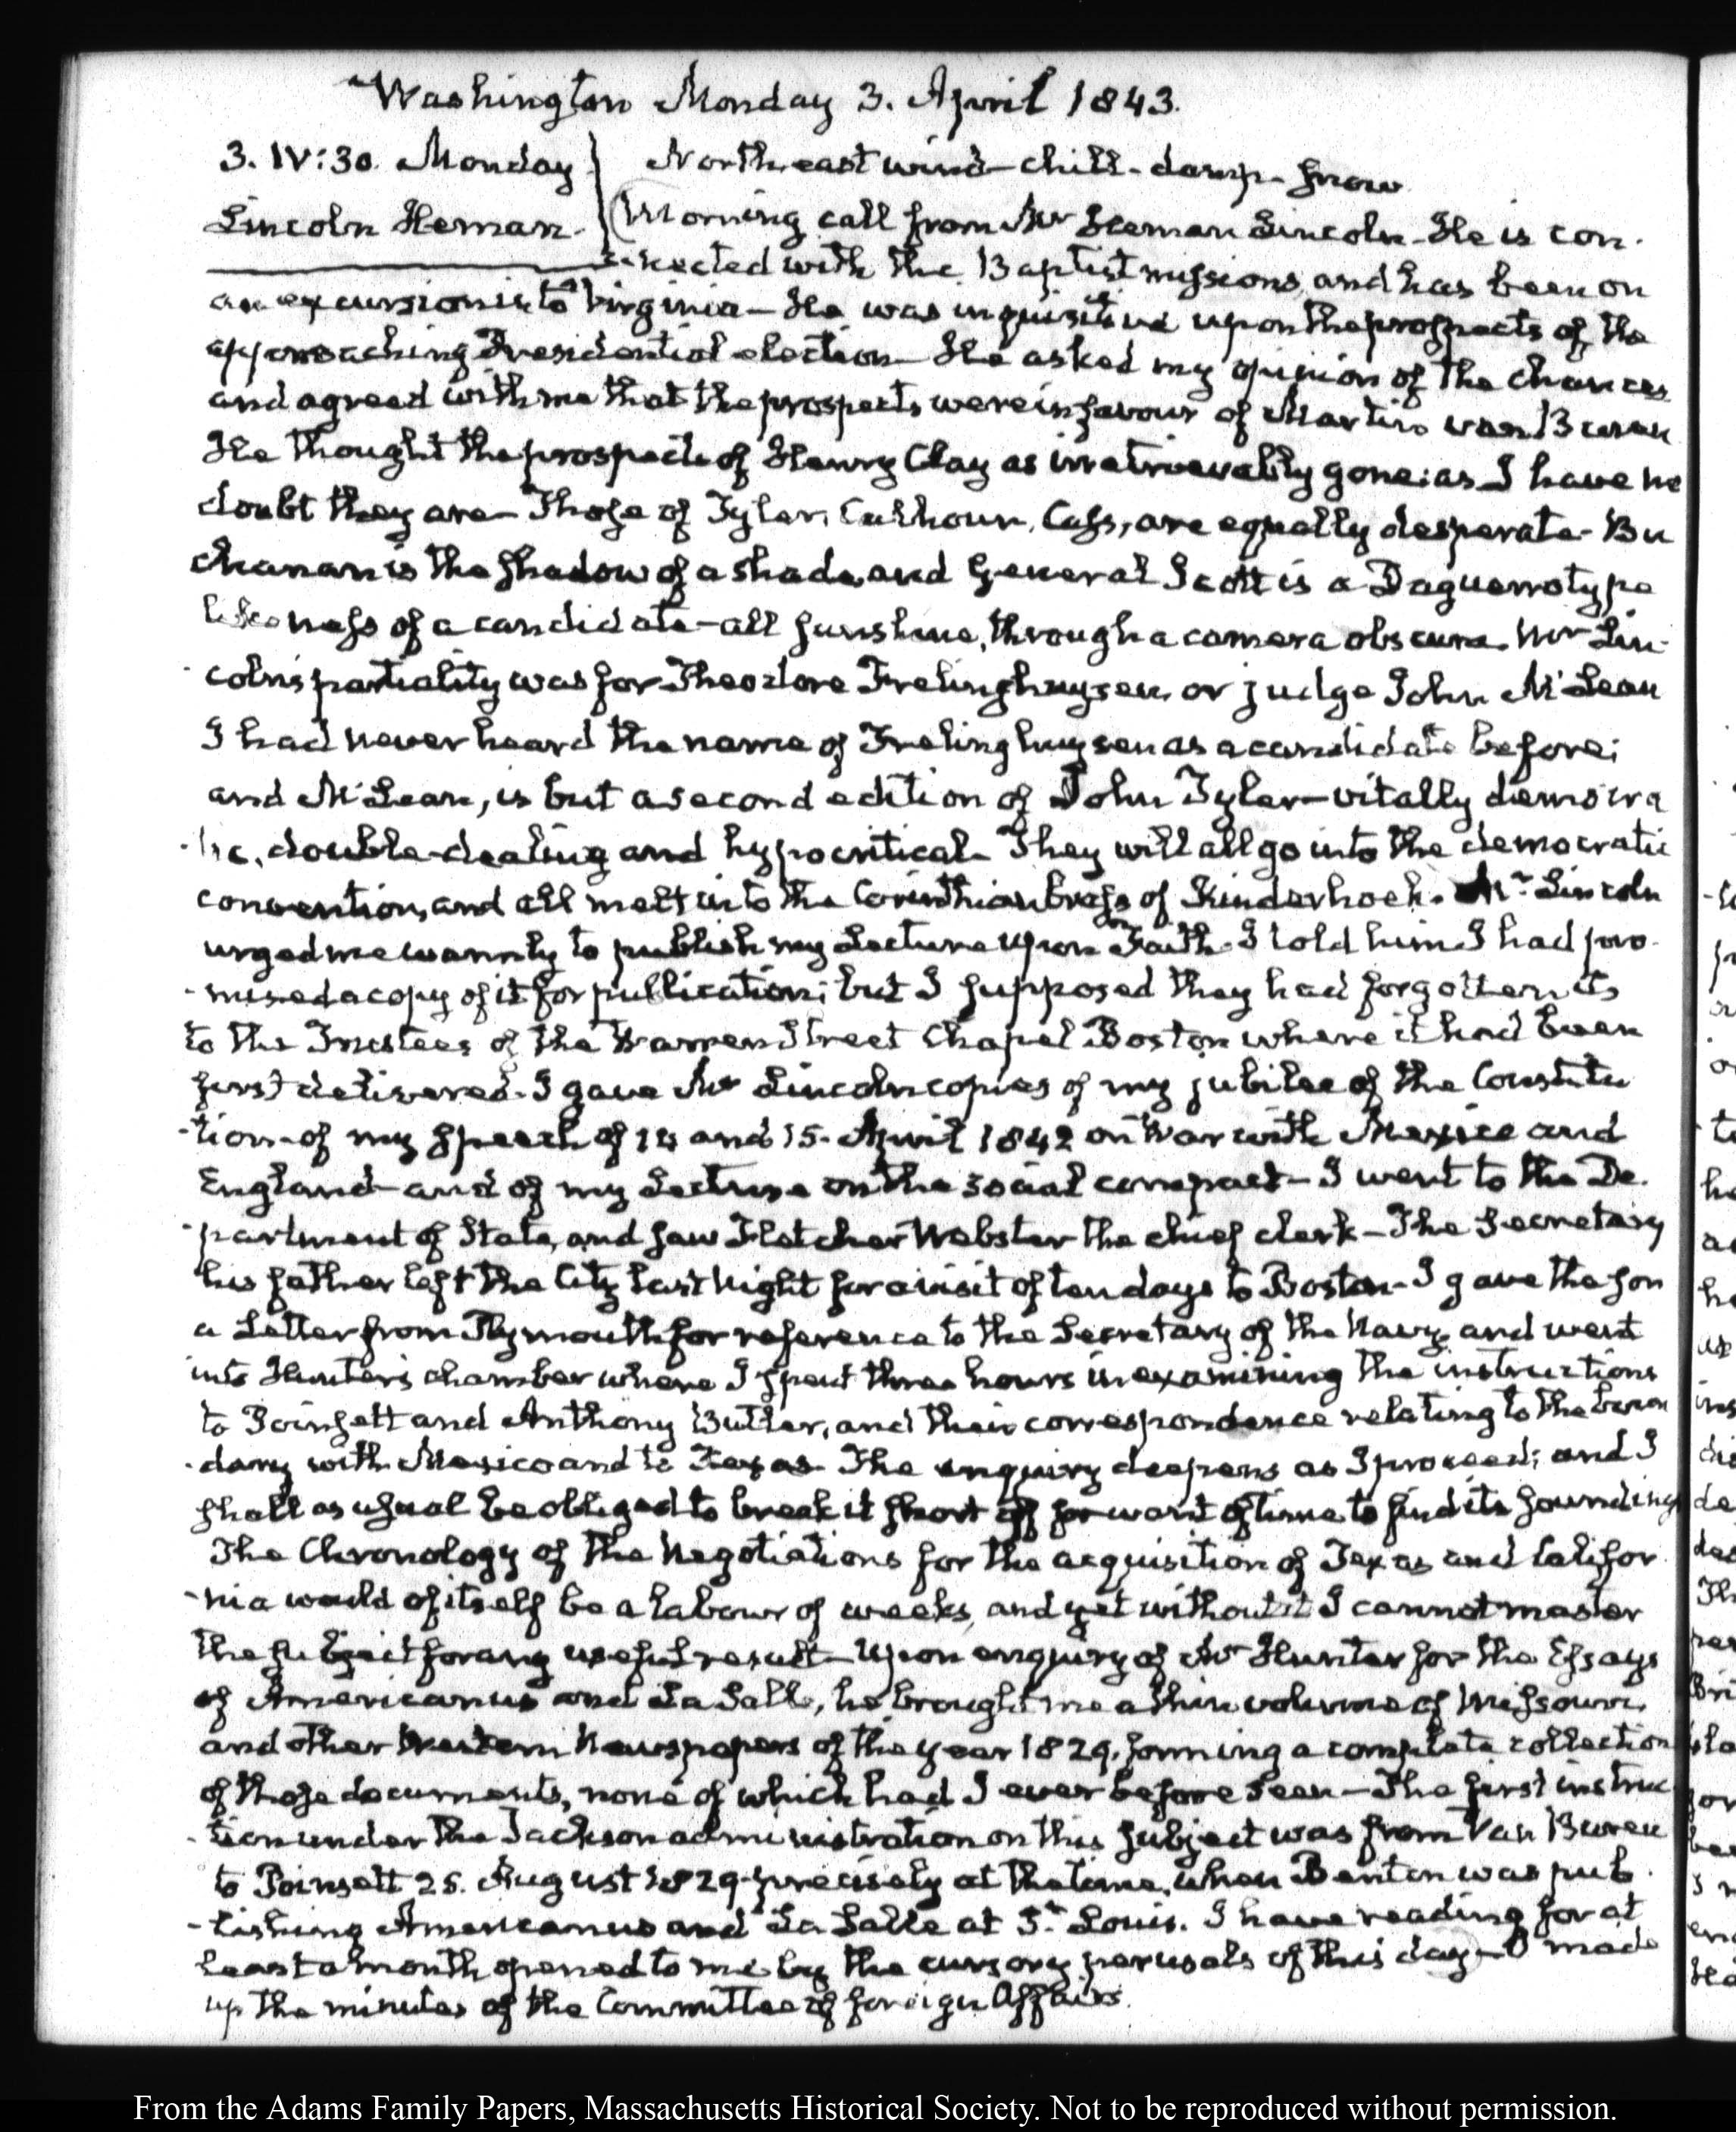 Washington Monday 3. April 1843.
3. IV:30. Monday
Lincoln Heman.
North east wind - chill - damp - snow
Morning call from Mr Heman Lincoln. He is con-
-nected with the Baptist missions, and has been on
an excursion into Virginia - He was inquisitive upon the prospects of the
approaching Presidential election - He asked my opinion of the chances
and agreed with me that the prospects were in favour of Martin van Buren
He thought the prospects of Henry Clay as irretrievably gone: as I have no
doubt they are - Those of Tyler, Calhoun, Cass, are equally desperate - Bu
chanan is the shadow of a shade, and General Scott is a Daguerrotype
likeness of a candidate - all sunshine, through a camera obscura. Mr Lin-
coln's partiality was for Theodore Frelinghuysen, or judge John McLean
I had never heard the name of Frelinghuysen as a candidate before;
and McLean, is but a second edition of John Tyler - vitally democra
-tic, double-dealing and hypocritical - They will all go into the democratic
convention, and all melt into the Corinthian brass of Kinderhook. Mr Lincoln
urged me warmly to publish my Lecture upon Faith - I told him I had pro-
-mised a copy of it for publication; but I supposed they had forgotten it,
to the Trustees of the Warren Street Chapel Boston where it had been
first delivered. I gave Mr Lincoln copies of my jubilee of the Constitu
-tion - of my Speech of 14 and 15. April 1842 on War with Mexico and
England - and of my Lecture on the social compact - I went to the De-
-partment of State, and saw Fletcher Webster the chief clerk - The Secretary
his father left the City last Night for a visit of ten days to Boston - I gave the son
a Letter from Plymouth for reference to the Secretary of the Navy and went
into Hunter's chamber where I spent three hours in examining the instructions
to Poinsett and Anthony Butler, and their correspondence relating to the boun
-dary with Mexico and to Texas - The enquiry deepens as I proceed; and I
shall as usual be obliged to break it short off for want of time to find its soundings
The Chronology of the Negotiations for the acquisition of Texas and Califor
-nia would of itself be a labour of weeks, and yet without it I cannot master
the subject for any useful result - Upon enquiry of Mr Hunter for the Essays
of Americanus and La Salle, he brought me a thin volume of Missouri,
and other Western Newspapers of the year 1829. forming a complete collection
of those documents, none of which had I ever before seen - The first instruc
-tion under the Jackson administration on this subject was from Van Buren
to Poinsett 25. August 1829. precisely at the time, when Benton was pub
-lishing Americanus and La Salle at St. Louis. I have reading for at
least a month opened to me by the cursory perusals of this day - I made
up the minutes of the Committee of foreign Affairs.
From the Adams Family Papers, Massachusetts Historical Society. Not to be reproduced without permission.